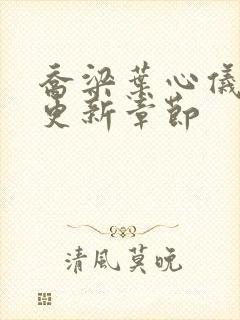 喬梁葉心儀
更新章節
清風莫晚